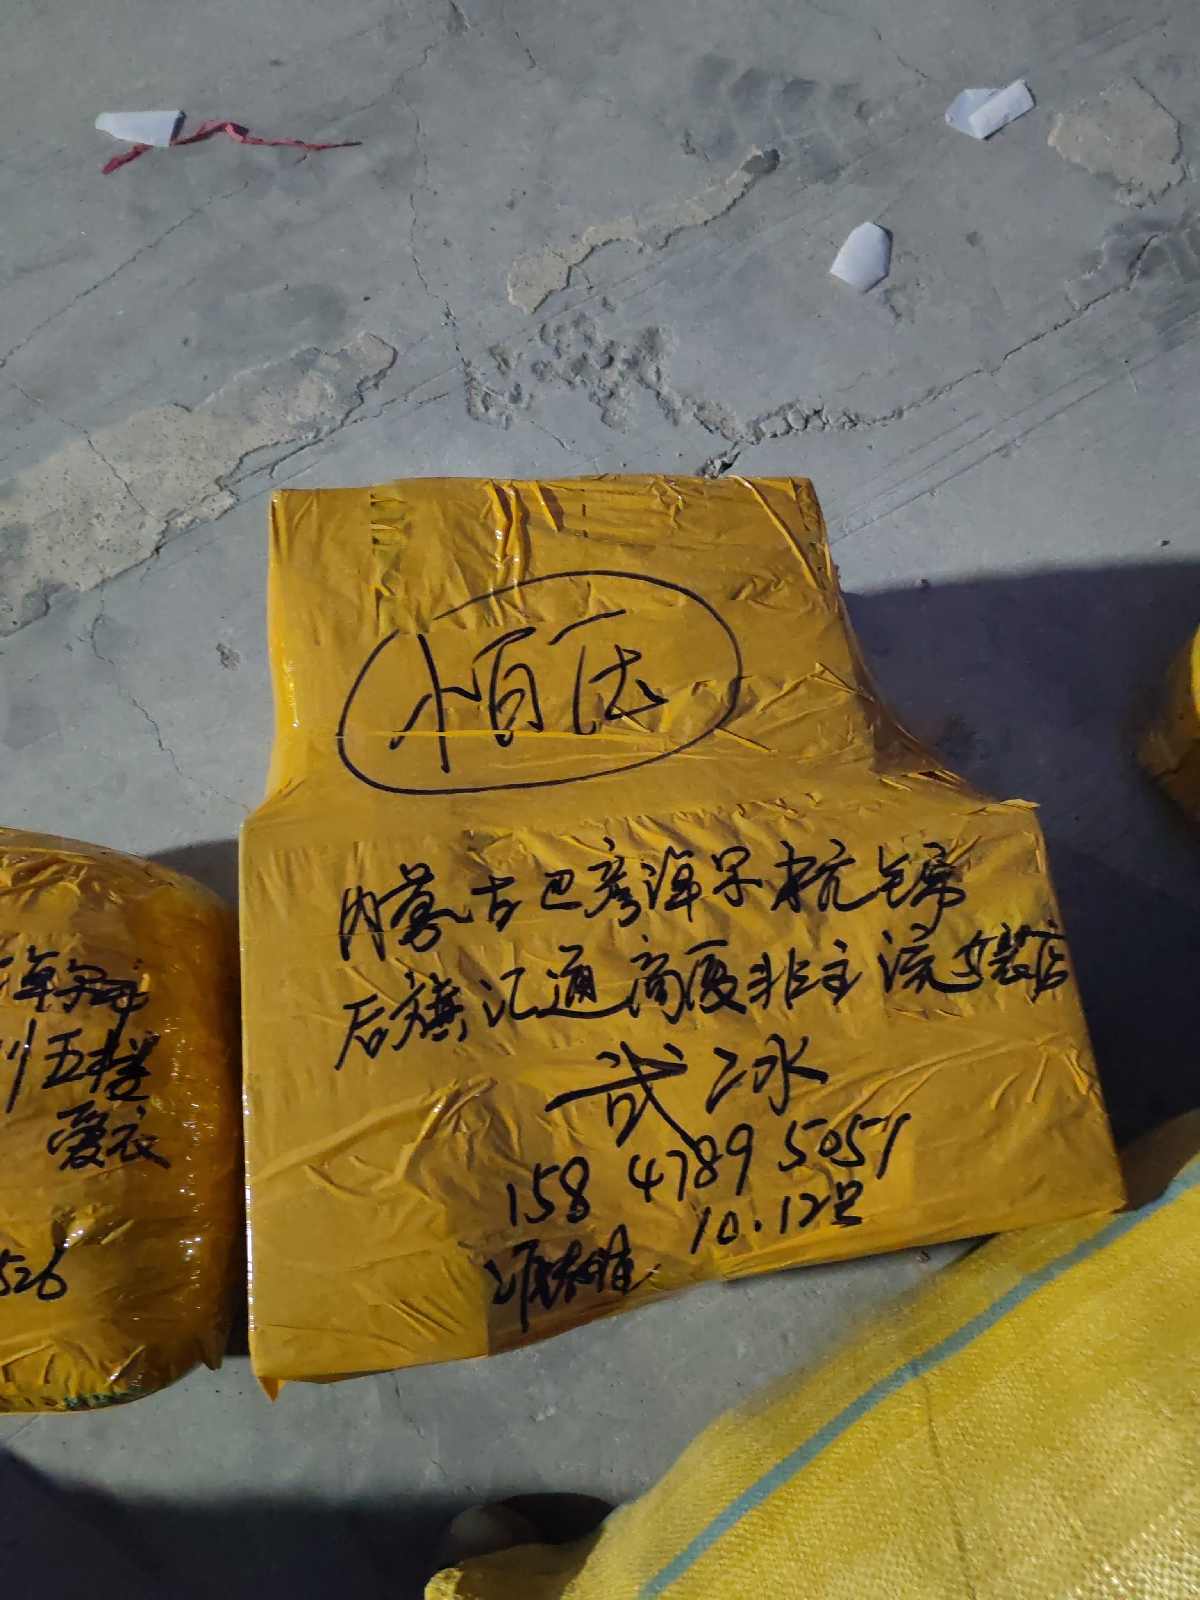 内蒙古巴彦淖尔杭锦
后旗汇通商厦非主流女装店
武二冰
158 4789 5051
10.12日
五楼
爱衣
526